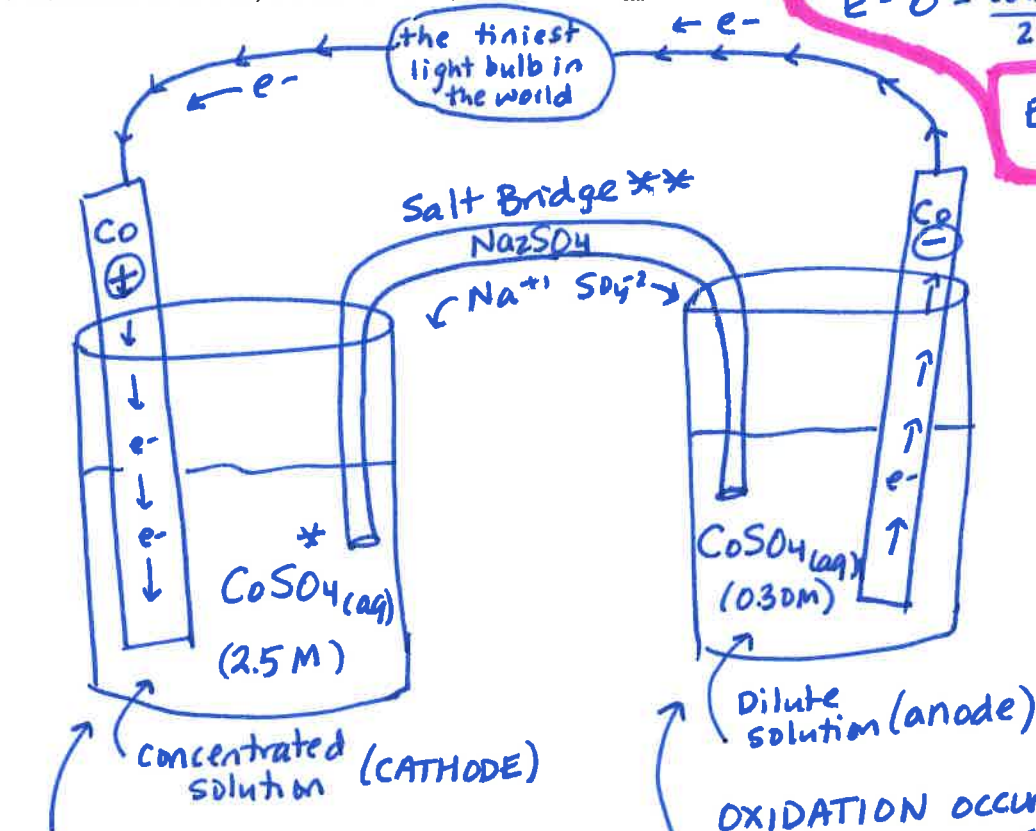 ← e-
E = 0 -
2
the tiniest
light bulb in
the world
← e-
E
Salt Bridge **
Na2SO4
Na+1 SO4-2
Co
+
e-
e-
Co
-
e-
*
CoSO4(aq)
(2.5 M)
CoSO4(aq)
(0.30M)
concentrated
solution (CATHODE)
Dilute
solution (anode)
OXIDATION OCCU